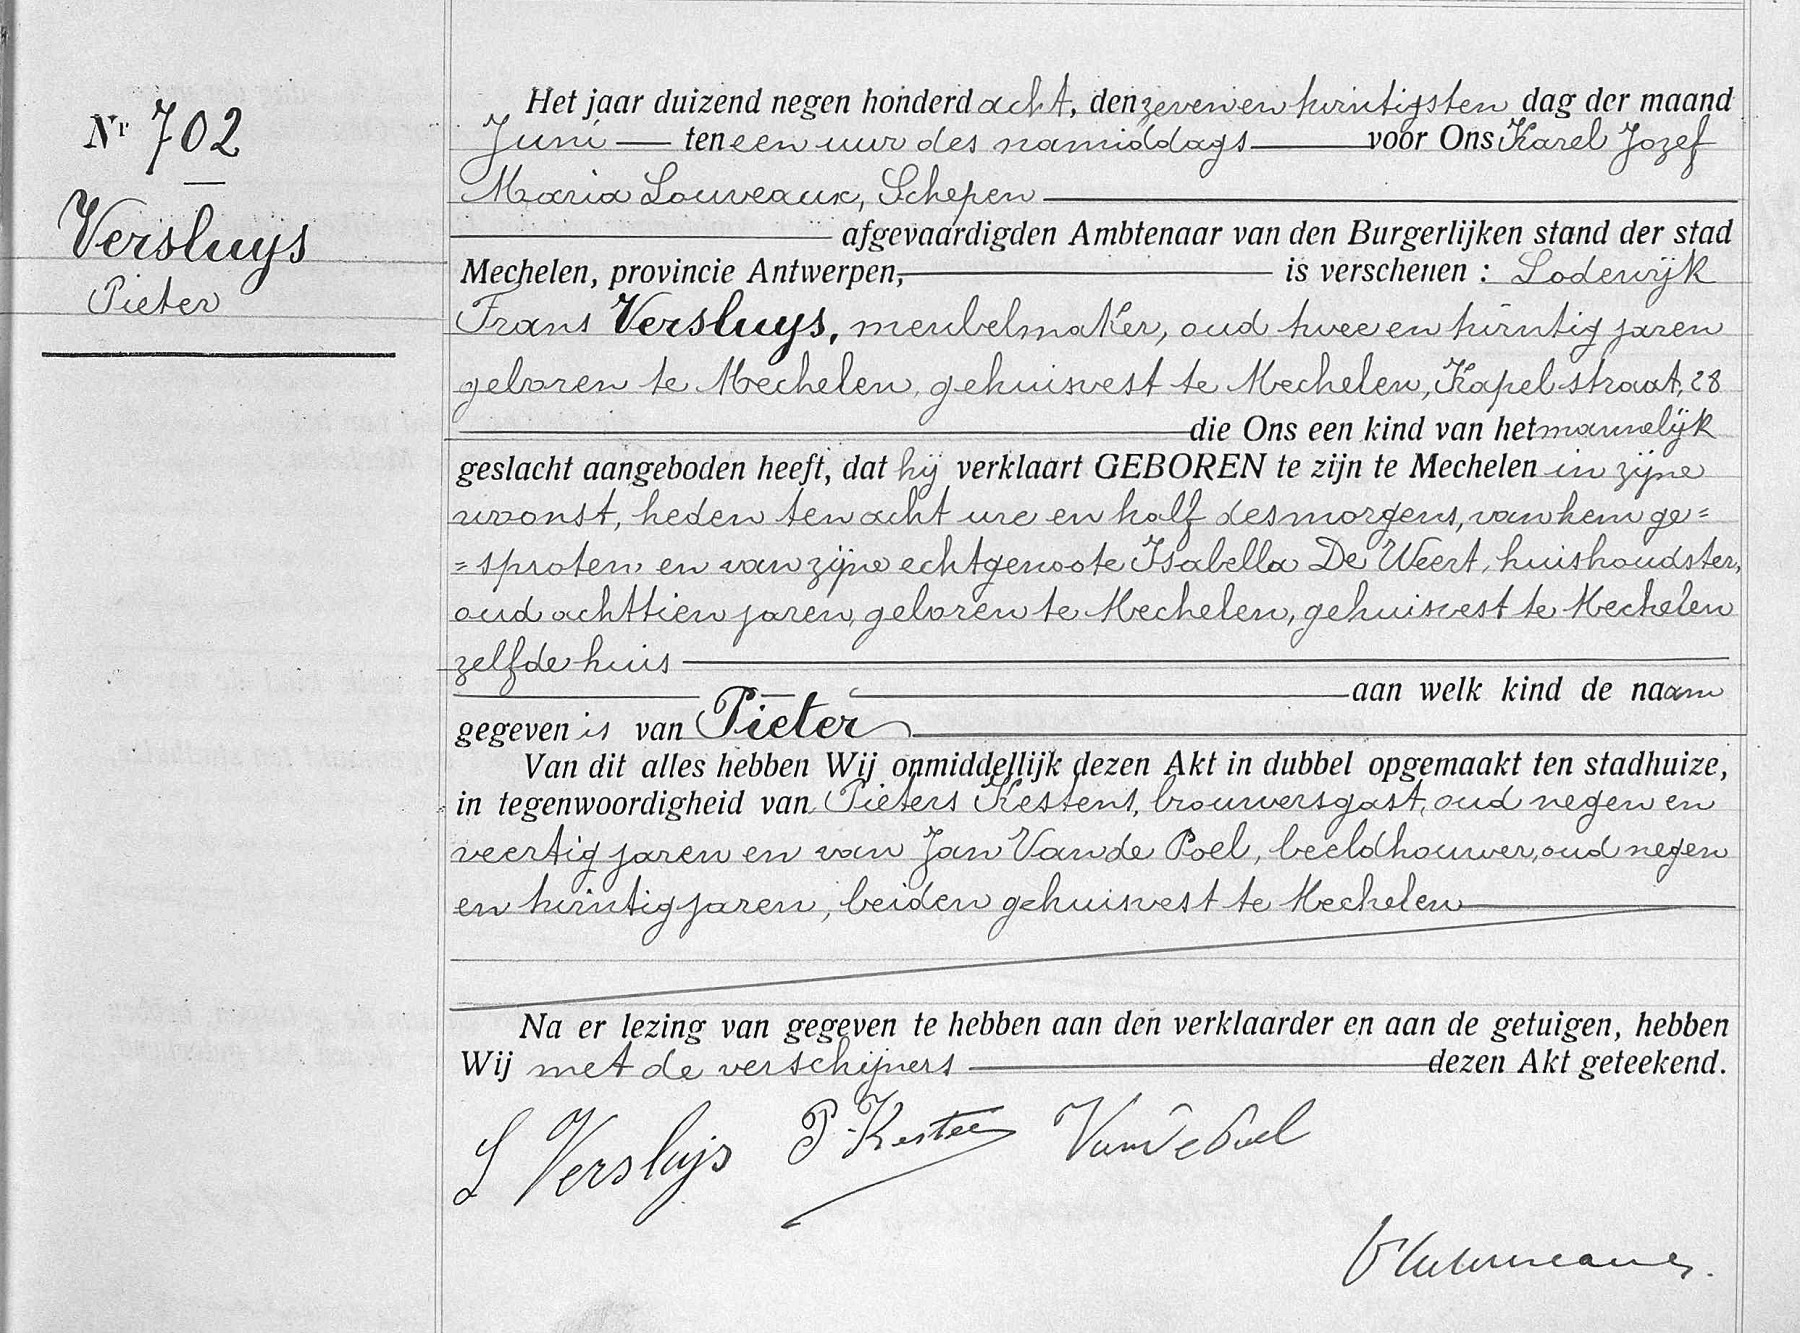 Nr 702
Versluys
Pieter
Het jaar duizend negen honderd acht, den zevenen twintigsten dag der maand
Juni — ten een uur des namiddags — voor Ons Karel Jozef
Maria Louveaux, Schepen
afgevaardigden Ambtenaar van den Burgerlijken stand der stad
Mechelen, provincie Antwerpen, — is verschenen : Lodewijk
Frans Versluys, meubelmaker, oud twee en twintig jaren
geboren te Mechelen, gehuisvest te Mechelen, Kapelstraat, 28
die Ons een kind van het mannelijk
geslacht aangeboden heeft, dat hij verklaart GEBOREN te zijn te Mechelen in zijne
woonst, heden ten acht ure en half des morgens, van hem ge=
=sproten en van zijne echtgenoote Isabella De Weert, huishoudster,
oud achttien jaren, geboren te Mechelen, gehuisvest te Mechelen
zelfde huis
aan welk kind de naam
gegeven is van Pieter
Van dit alles hebben Wij onmiddellijk dezen Akt in dubbel opgemaakt ten stadhuize,
in tegenwoordigheid van Pieters Kestens, brouwersgast, oud negen en
veertig jaren en van Jan Van de Poel, beeldhouwer, oud negen
en twintig jaren, beiden gehuisvest te Mechelen
Na er lezing van gegeven te hebben aan den verklaarder en aan de getuigen, hebben
Wij met de verschijners — dezen Akt geteekend.
L Versluijs P. Kesten Van de Poel